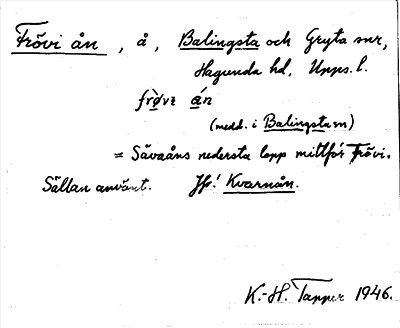 Frövi ån, å, Balingsta och Gryta snr,
Hagunda hd, Upps. l.
frö̀vı án
(medd. i Balingsta sn)
= Sävaåns nedersta lopp mittför Frövi.
Sällan använt. Jfr! Kvarnån.
K.-H. Tapper 1946.